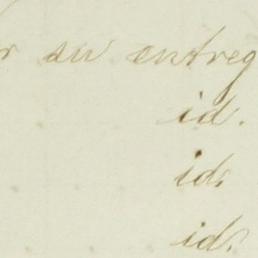 r su entreg
id.
id.
id.